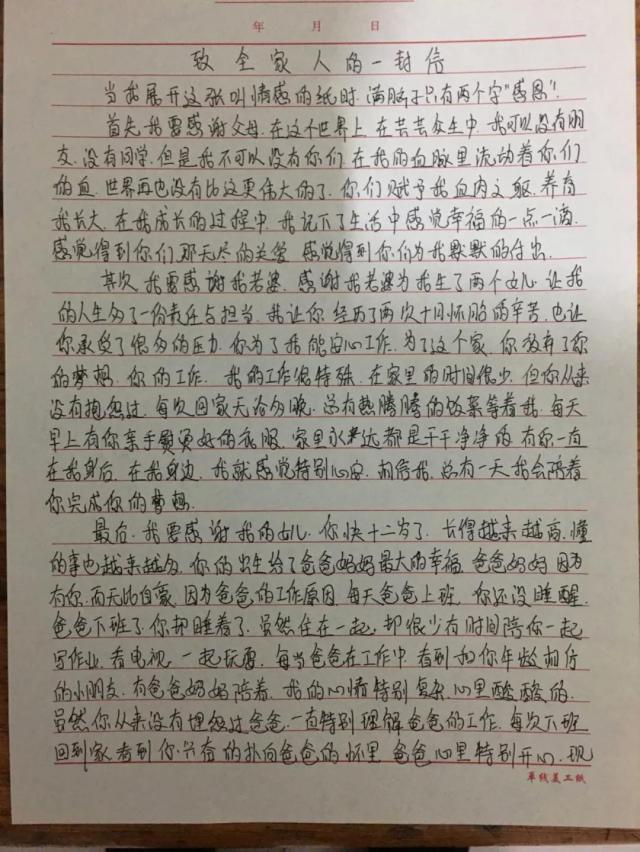 年 月 日
致全家人的一封信
当我展开这张叫情感的纸时.满脑子只有两个字"感恩"!
首先.我要感谢父母.在这个世界上.在芸芸众生中.我可以没有朋
友.没有同学.但是我不可以没有你们.在我的血脉里流动着你们
的血.世界再也没有比这更伟大的了.你们赋予我血肉之躯.养育
我长大.在我成长的过程中.我记下了生活中感觉幸福的一点一滴.
感觉得到你们那无尽的关爱.感觉得到你们为我默默的付出.
其次.我要感谢我老婆.感谢我老婆为我生了两个女儿.让我
的人生多了一份责任与担当.我让你经历了两次十月怀胎的辛苦.也让
你承受了很多的压力.你为了我能安心工作.为了这个家.你放弃了你
的梦想.你的工作.我的工作很特殊.在家里的时间很少.但你从来
没有抱怨过.每次回家无论多晚.总有热腾腾的饭菜等着我.每天
早上有你亲手熨烫好的衣服.家里永远都是干干净净的.有你一直
在我身后.在我身边.我就感觉特别心安.相信我.总有一天我会陪着
你完成你的梦想.
最后.我要感谢我的女儿.你快十二岁了.长得越来越高.懂
的事也越来越多.你的出生给了爸爸妈妈最大的幸福.爸爸妈妈因为
有你.而无比自豪.因为爸爸的工作原因.每天爸爸上班.你还没睡醒.
爸爸下班了.你却睡着了.虽然住在一起.却很少有时间陪你一起
写作业.看电视.一起玩耍.每当爸爸在工作中.看到和你年龄相仿
的小朋友.有爸爸妈妈陪着.我的心情特别复杂.心里酸酸的.
虽然你从来没有埋怨过爸爸.一直特别理解爸爸的工作.每次下班
回到家.看到你兴奋的扑向爸爸的怀里.爸爸心里特别开心.现
单线美工纸